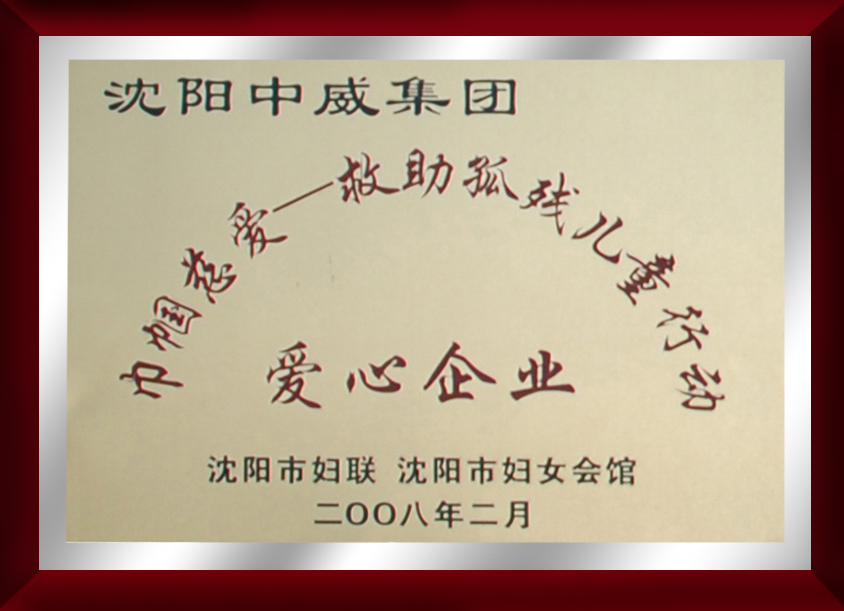 沈阳中威集团
巾帼慈爱—救助孤残儿童行动
爱心企业
沈阳市妇联 沈阳市妇女会馆
二〇〇八年二月